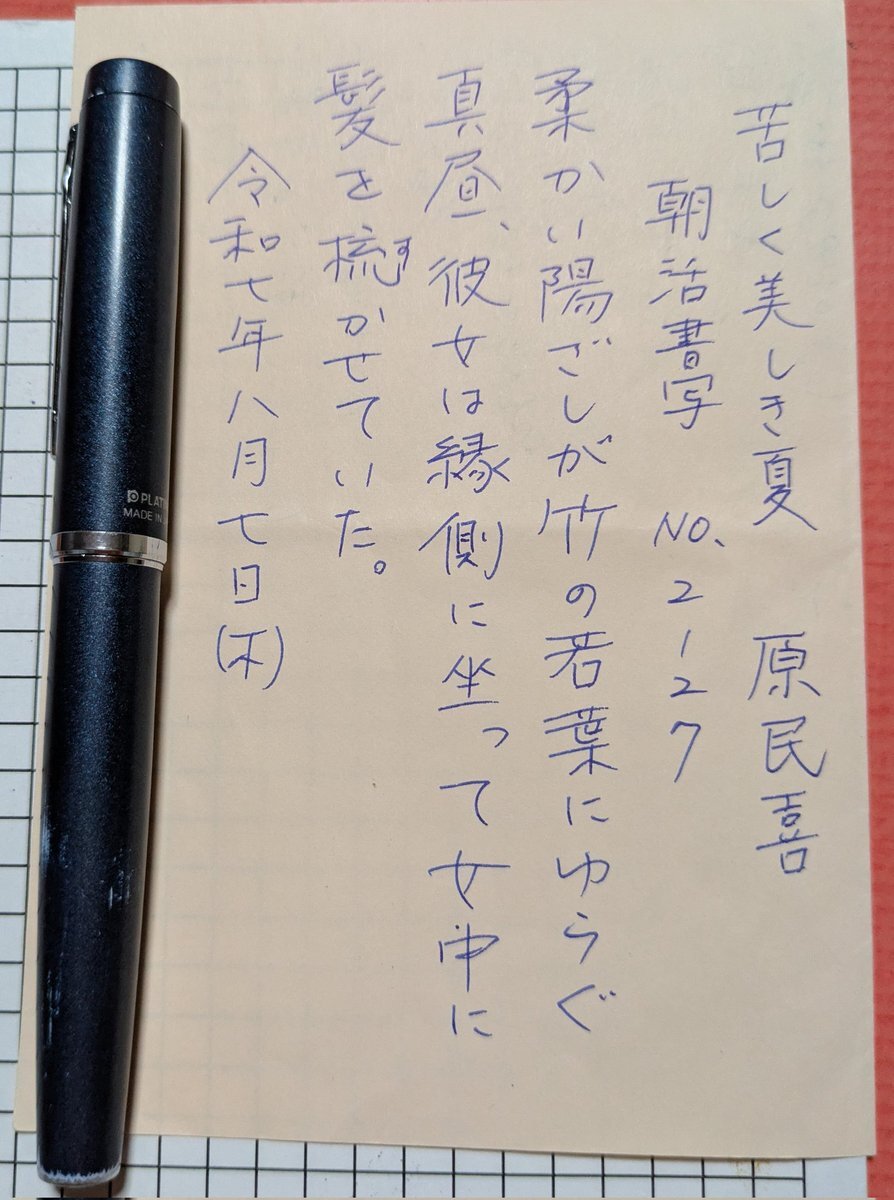 苦しく美しき夏　原民喜
朝活書写　NO.2127
柔かい陽ざしが竹の若葉にゆらぐ
真昼、彼女は縁側に坐って女中に
髪を梳かせていた。
す
令和七年八月七日(木)
PLAT
MADE IN